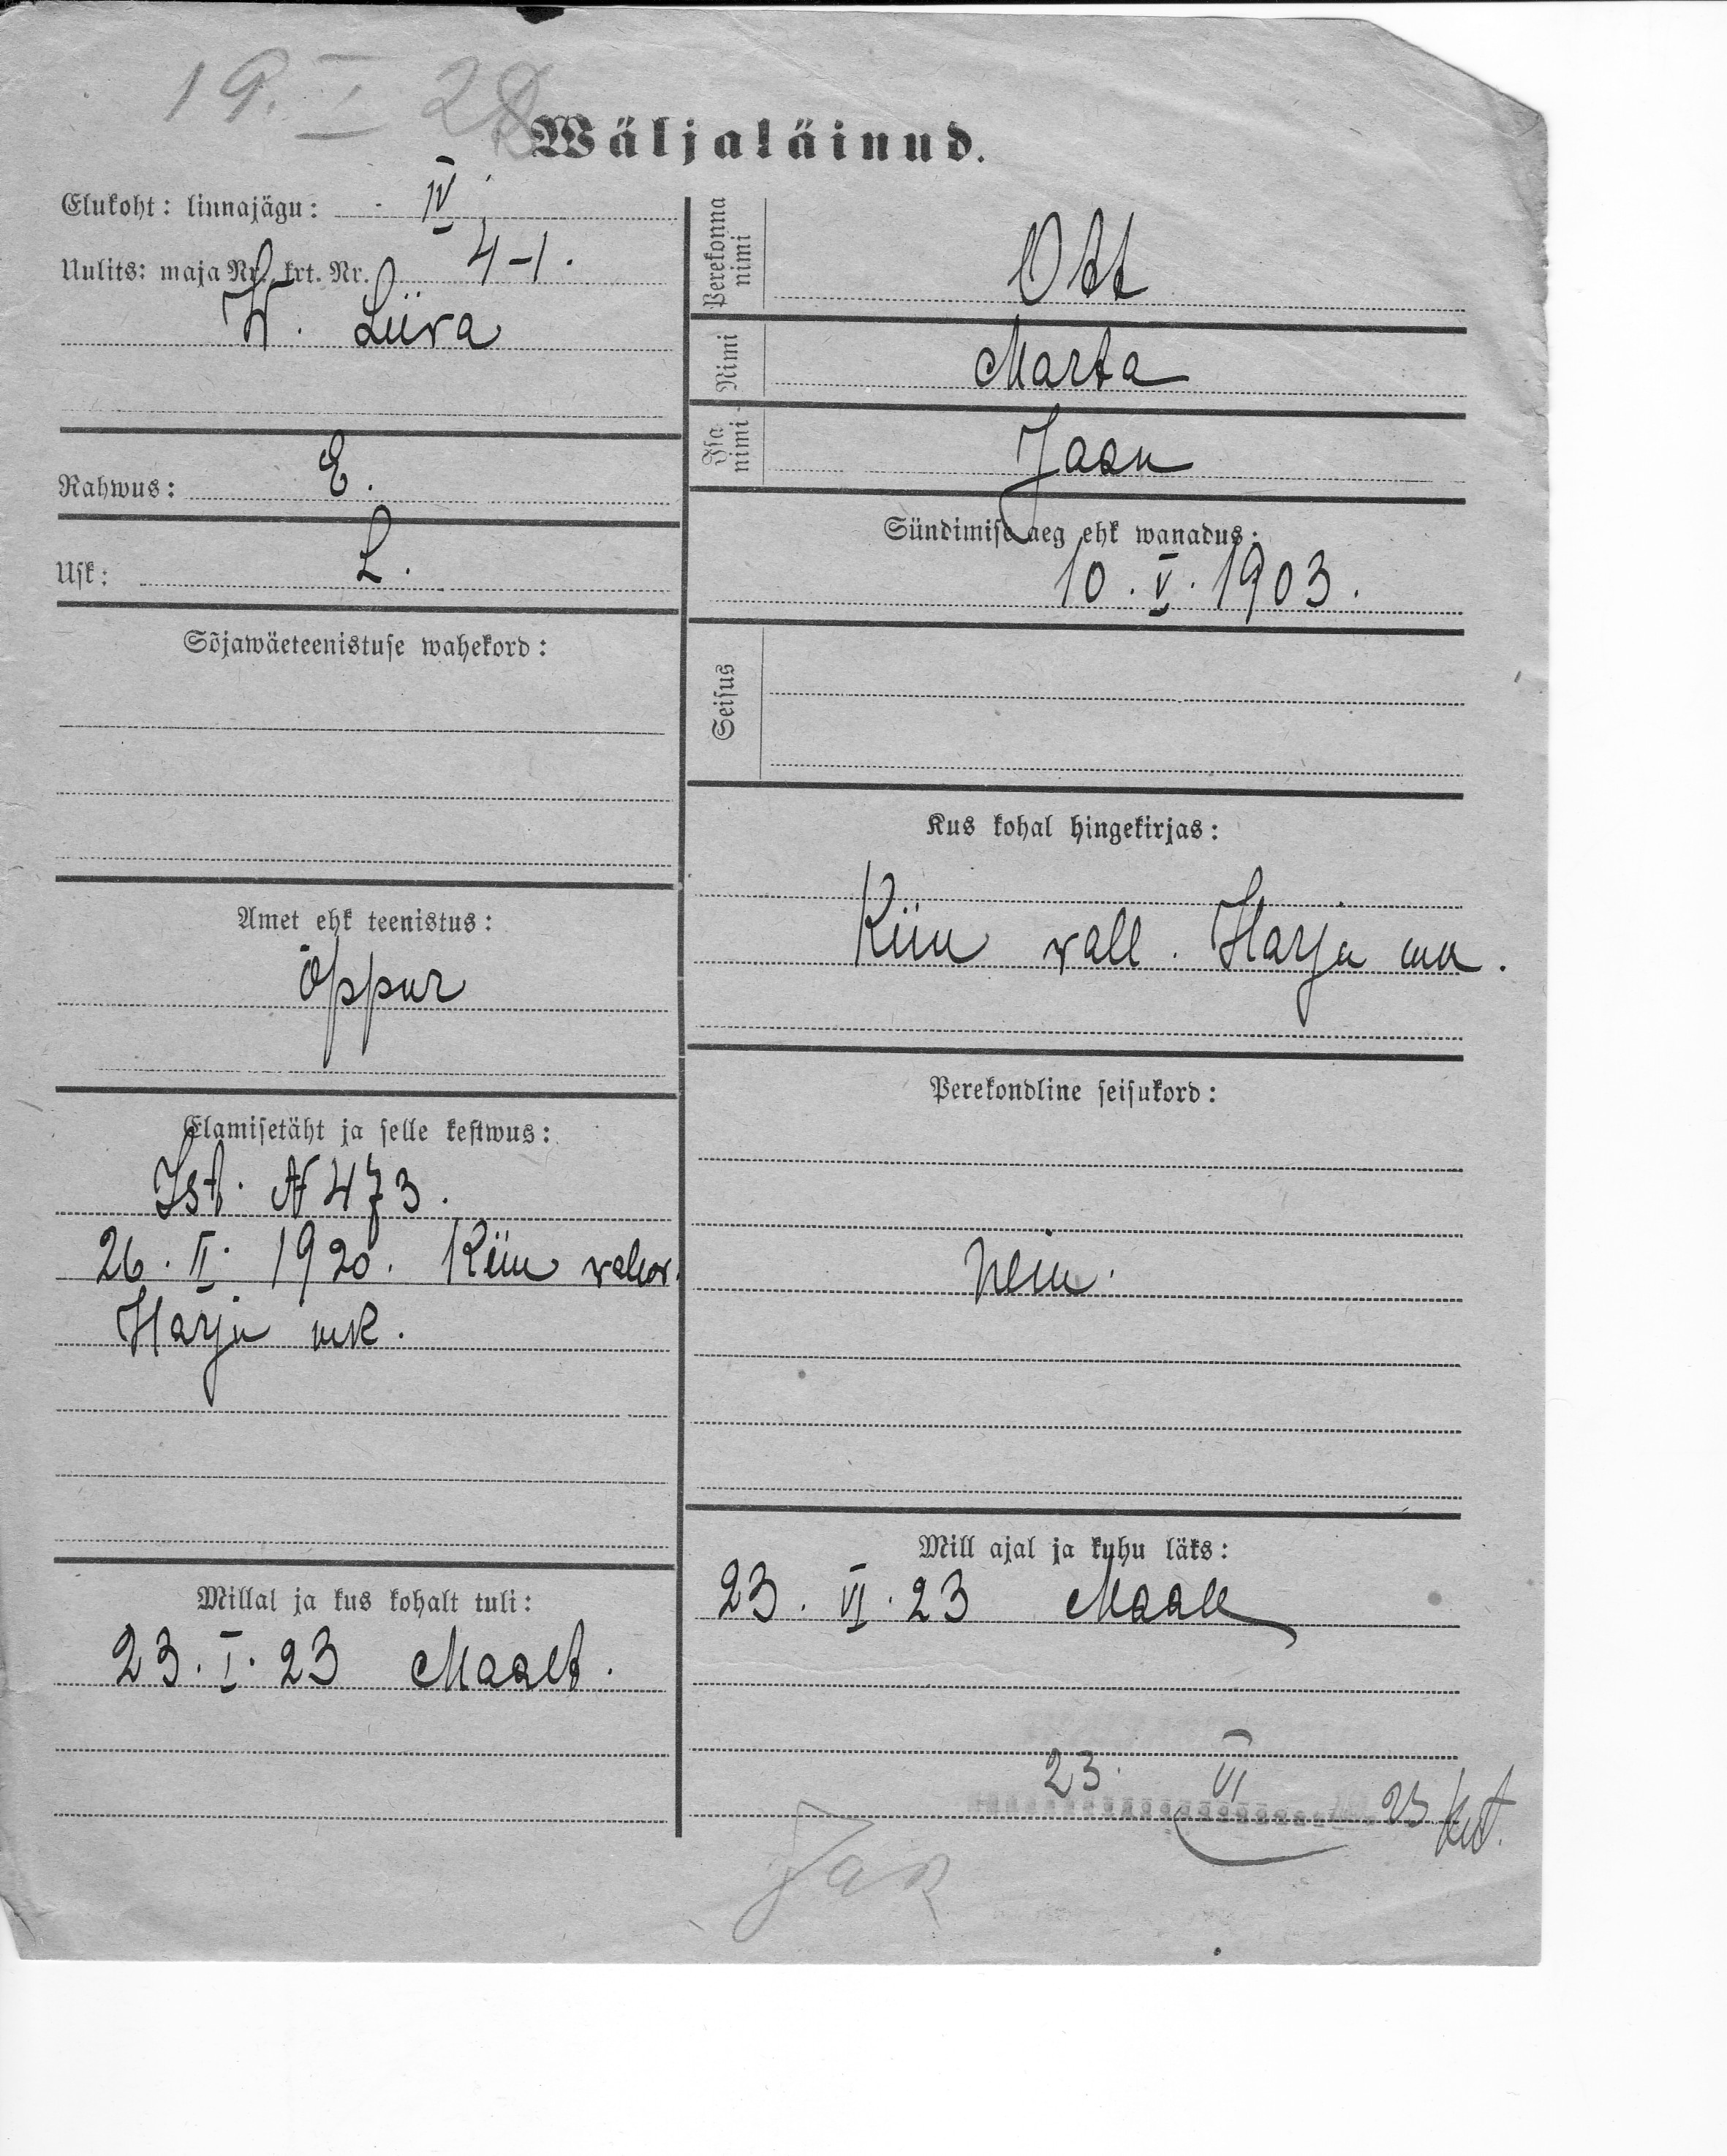 19. I 28
Wäljaläinud.
Elukoht: linnajägu: IV
Uulits: maja Nr. krt. Nr. 4-1.
W. Liiva
Rahwus: E.
Usk: L.
Sõjawäeteenistuse wahekord:
Amet ehk teenistus:
õppur
Elamisetäht ja selle kestwus:
Ist. N 473.
26. II. 1920. Kiiu
Harju mk.
Millal ja kus kohalt tuli:
23. I. 23 Maalt.
Perekonna nimi
Ott
Nimi
Marta
Isa nimi
Jaan
Sündimise aeg ehk wanadus:
10. V. 1903.
Seisus
Kus kohal hingekirjas:
Kiiu vall. Harju
Perekondline seisukord:
Neiu.
Mill ajal ja kuhu läks:
23. VI. 23 Maale
23. VI 23
Jak